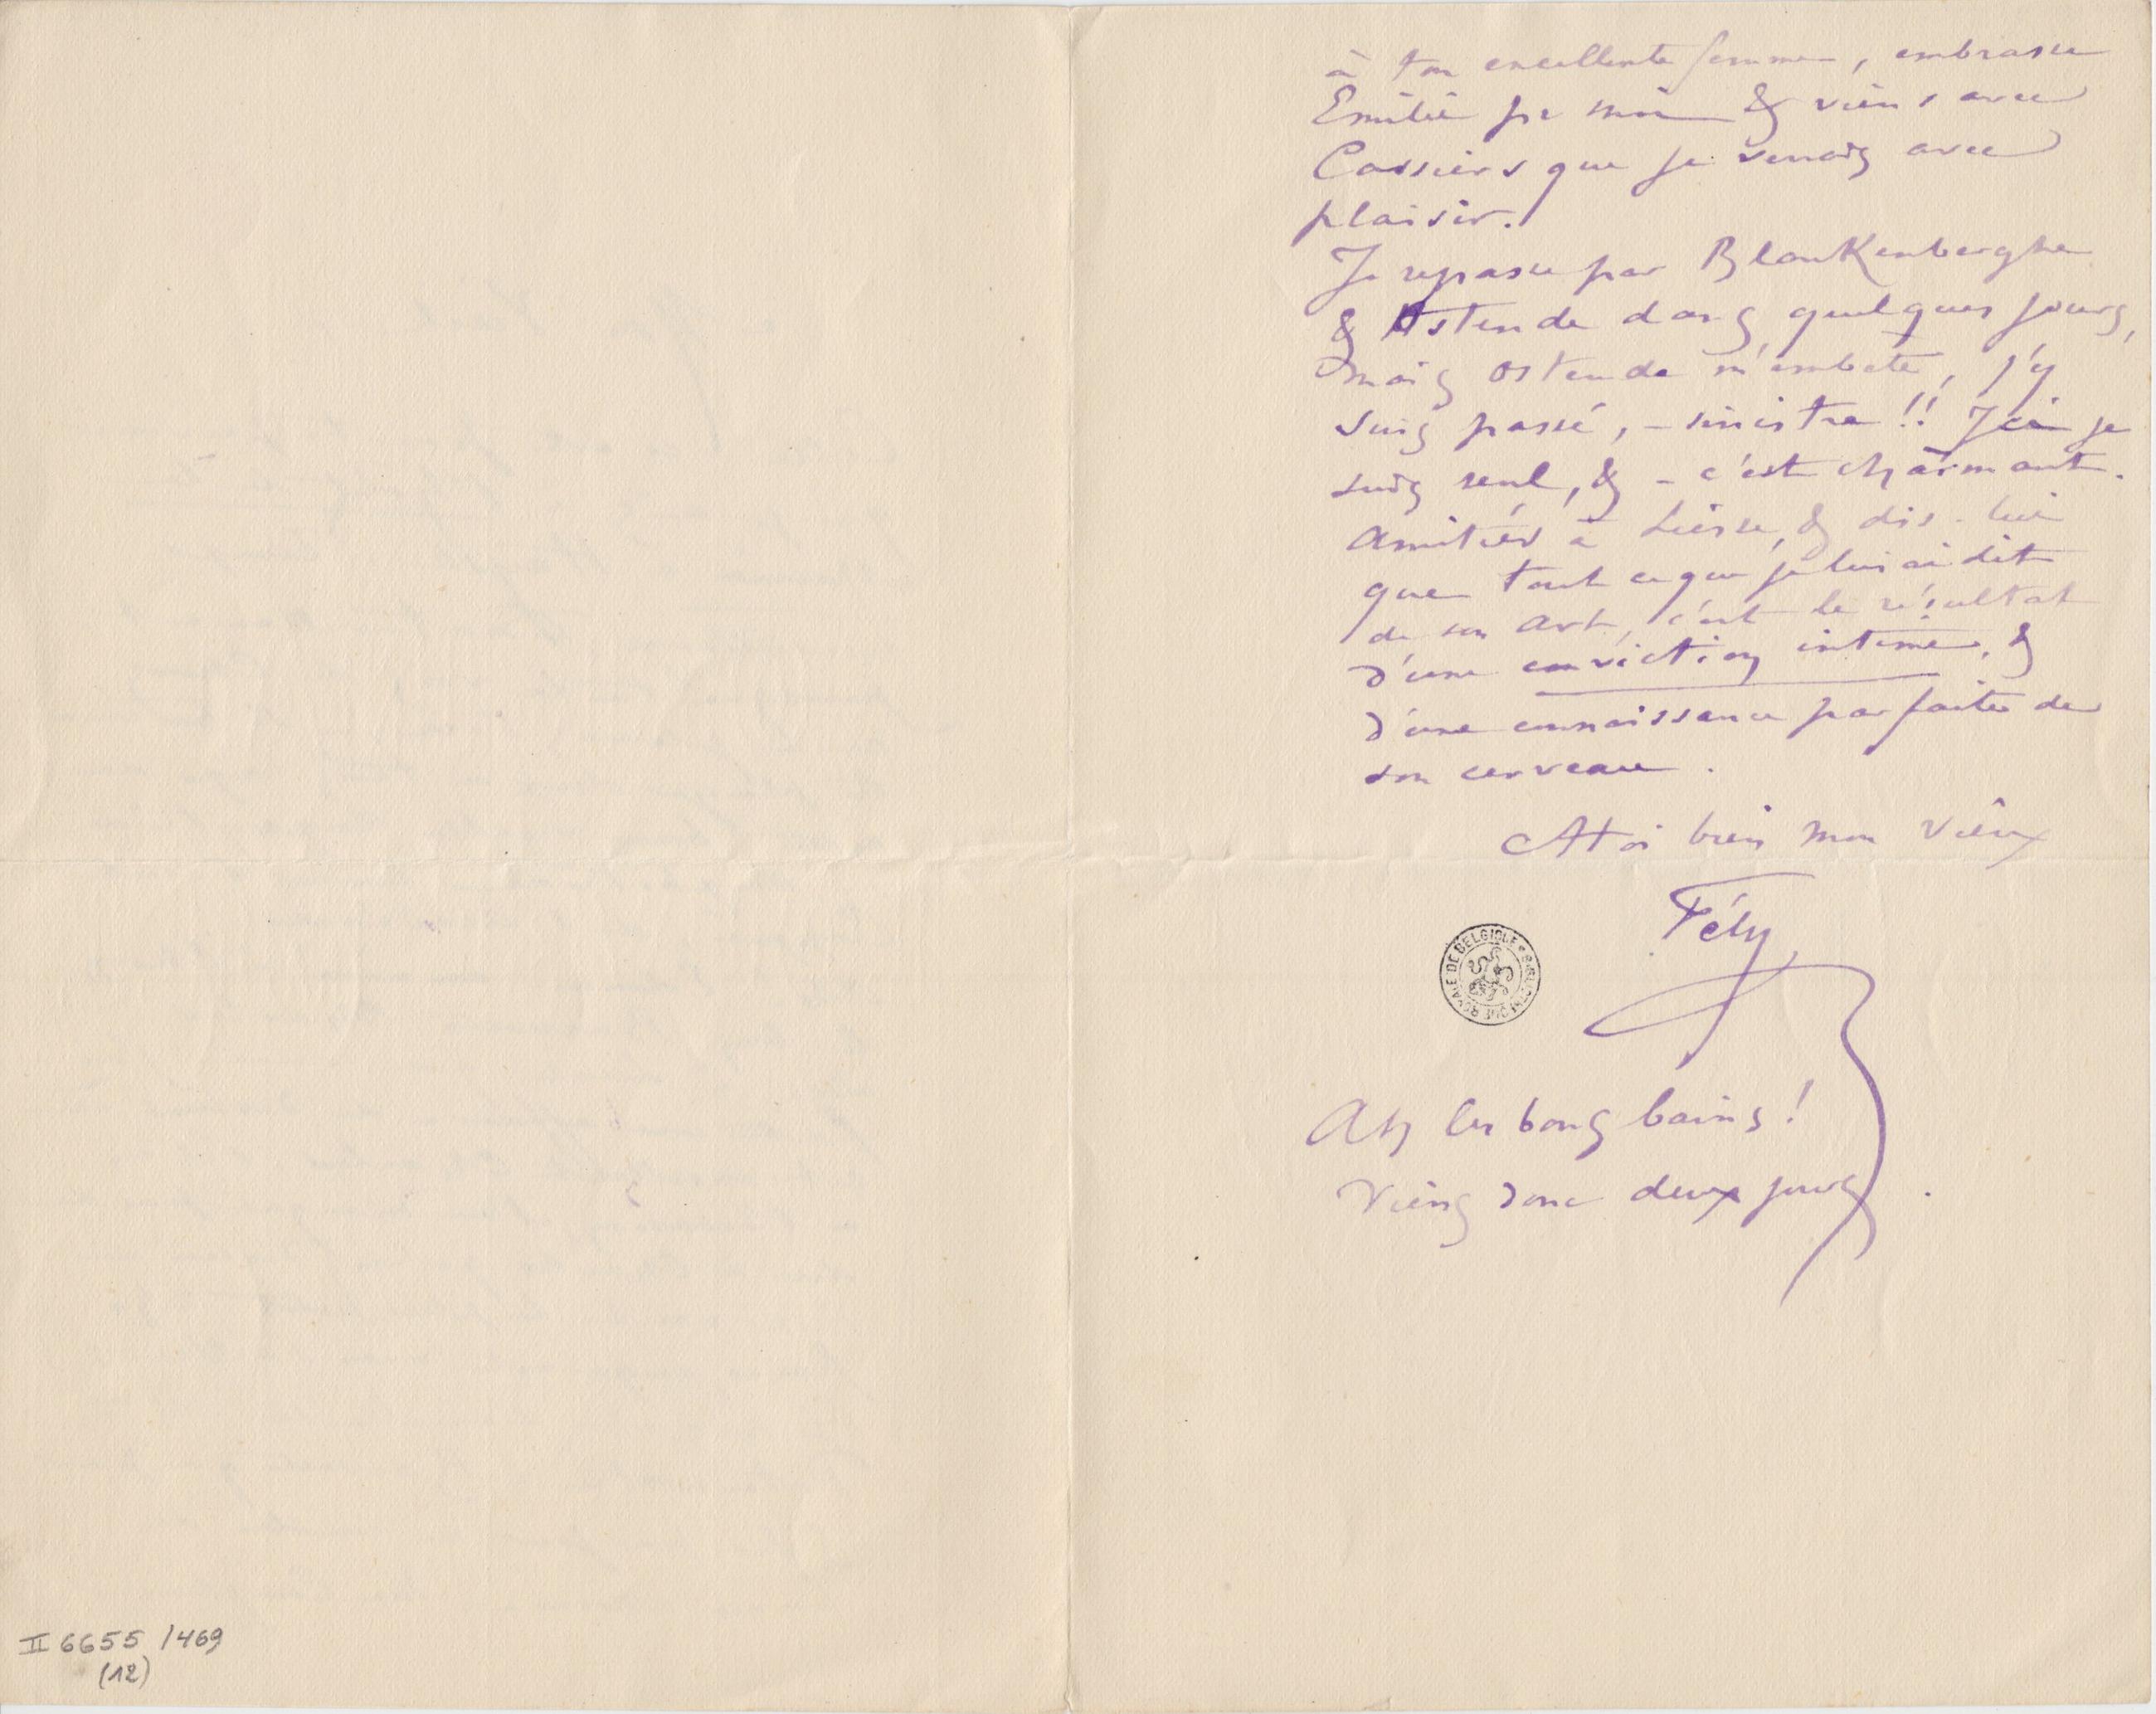 à ton excellente femme, embrasse
Emilie pr moi & viens avec
Cassiers que je verrais avec
plaisir.
Je repasse par BlanKenberghe
& Ostende dans quelques jours,
mais Ostende m'embete, j'y
suis passé, – sinistre !! Ici je
suis seul, & – c'est charmant.
Amitiés à & dis-lui
que tout ce que je lui ai dit
de son art, c'est le résultat
d'une conviction intime, &
d'une connaissance parfaite de
son cerveau.
A toi bien mon vieux
Fély
BIBLIOTHEQUE ROYALE DE BELGIQUE
Ah les bons bains !
Viens donc deux jours.
II 6655 /469
(12)